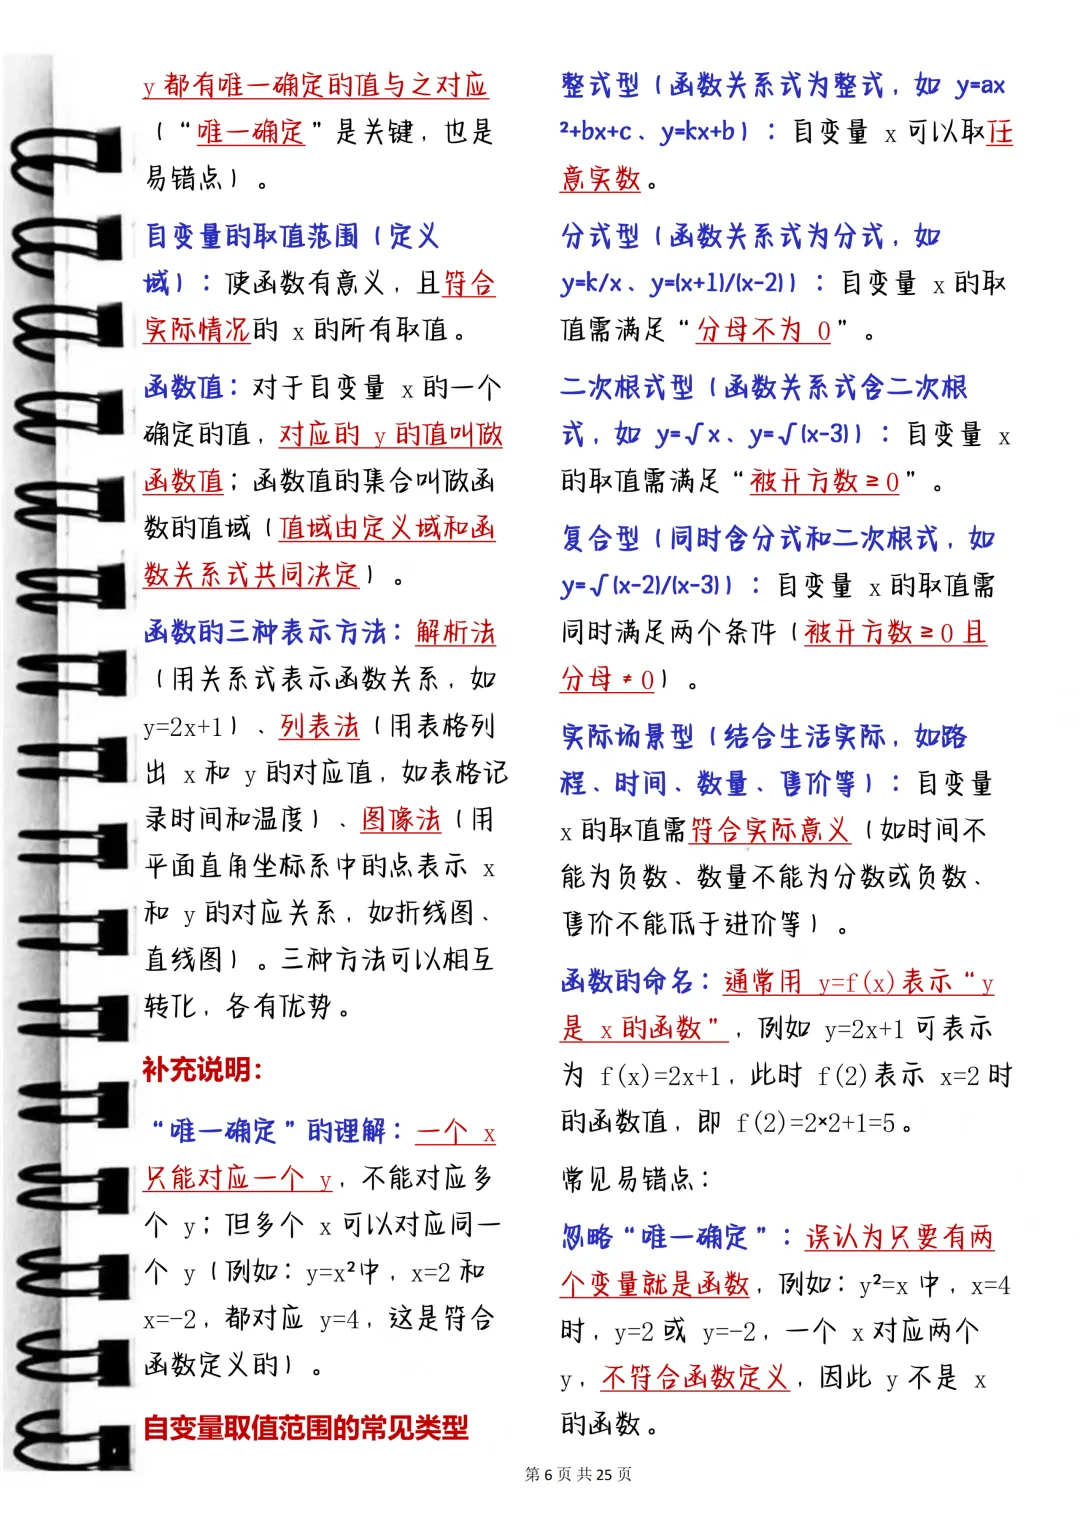 y 都有唯一确定的值与之对应
（“唯一确定”是关键，也是
易错点）。
自变量的取值范围（定义
域）：使函数有意义，且符合
实际情况的 x 的所有取值。
函数值：对于自变量 x 的一个
确定的值，对应的 y 的值叫做
函数值；函数值的集合叫做函
数的值域（值域由定义域和函
数关系式共同决定）。
函数的三种表示方法：解析法
（用关系式表示函数关系，如
y=2x+1）、列表法（用表格列
出 x 和 y 的对应值，如表格记
录时间和温度）、图像法（用
平面直角坐标系中的点表示 x
和 y 的对应关系，如折线图、
直线图）。三种方法可以相互
转化，各有优势。
补充说明：
“唯一确定”的理解：一个 x
只能对应一个 y，不能对应多
个 y；但多个 x 可以对应同一
个 y（例如：y=x²中，x=2 和
x=-2，都对应 y=4，这是符合
函数定义的）。
自变量取值范围的常见类型
整式型（函数关系式为整式，如 y=ax
²+bx+c、y=kx+b）：自变量 x 可以取任
意实数。
分式型（函数关系式为分式，如
y=k/x、y=(x+1)/(x-2)）：自变量 x 的取
值需满足“分母不为 0”。
二次根式型（函数关系式含二次根
式，如 y=√x、y=√(x-3)）：自变量 x
的取值需满足“被开方数≥0”。
复合型（同时含分式和二次根式，如
y=√(x-2)/(x-3)）：自变量 x 的取值需
同时满足两个条件（被开方数≥0 且
分母≠0）。
实际场景型（结合生活实际，如路
程、时间、数量、售价等）：自变量
x 的取值需符合实际意义（如时间不
能为负数、数量不能为分数或负数、
售价不能低于进价等）。
函数的命名：通常用 y=f(x)表示“y
是 x 的函数”，例如 y=2x+1 可表示
为 f(x)=2x+1，此时 f(2)表示 x=2 时
的函数值，即 f(2)=2×2+1=5。
常见易错点：
忽略“唯一确定”：误认为只要有两
个变量就是函数，例如：y²=x 中，x=4
时，y=2 或 y=-2，一个 x 对应两个
y，不符合函数定义，因此 y 不是 x
的函数。
第 6 页 共 25 页